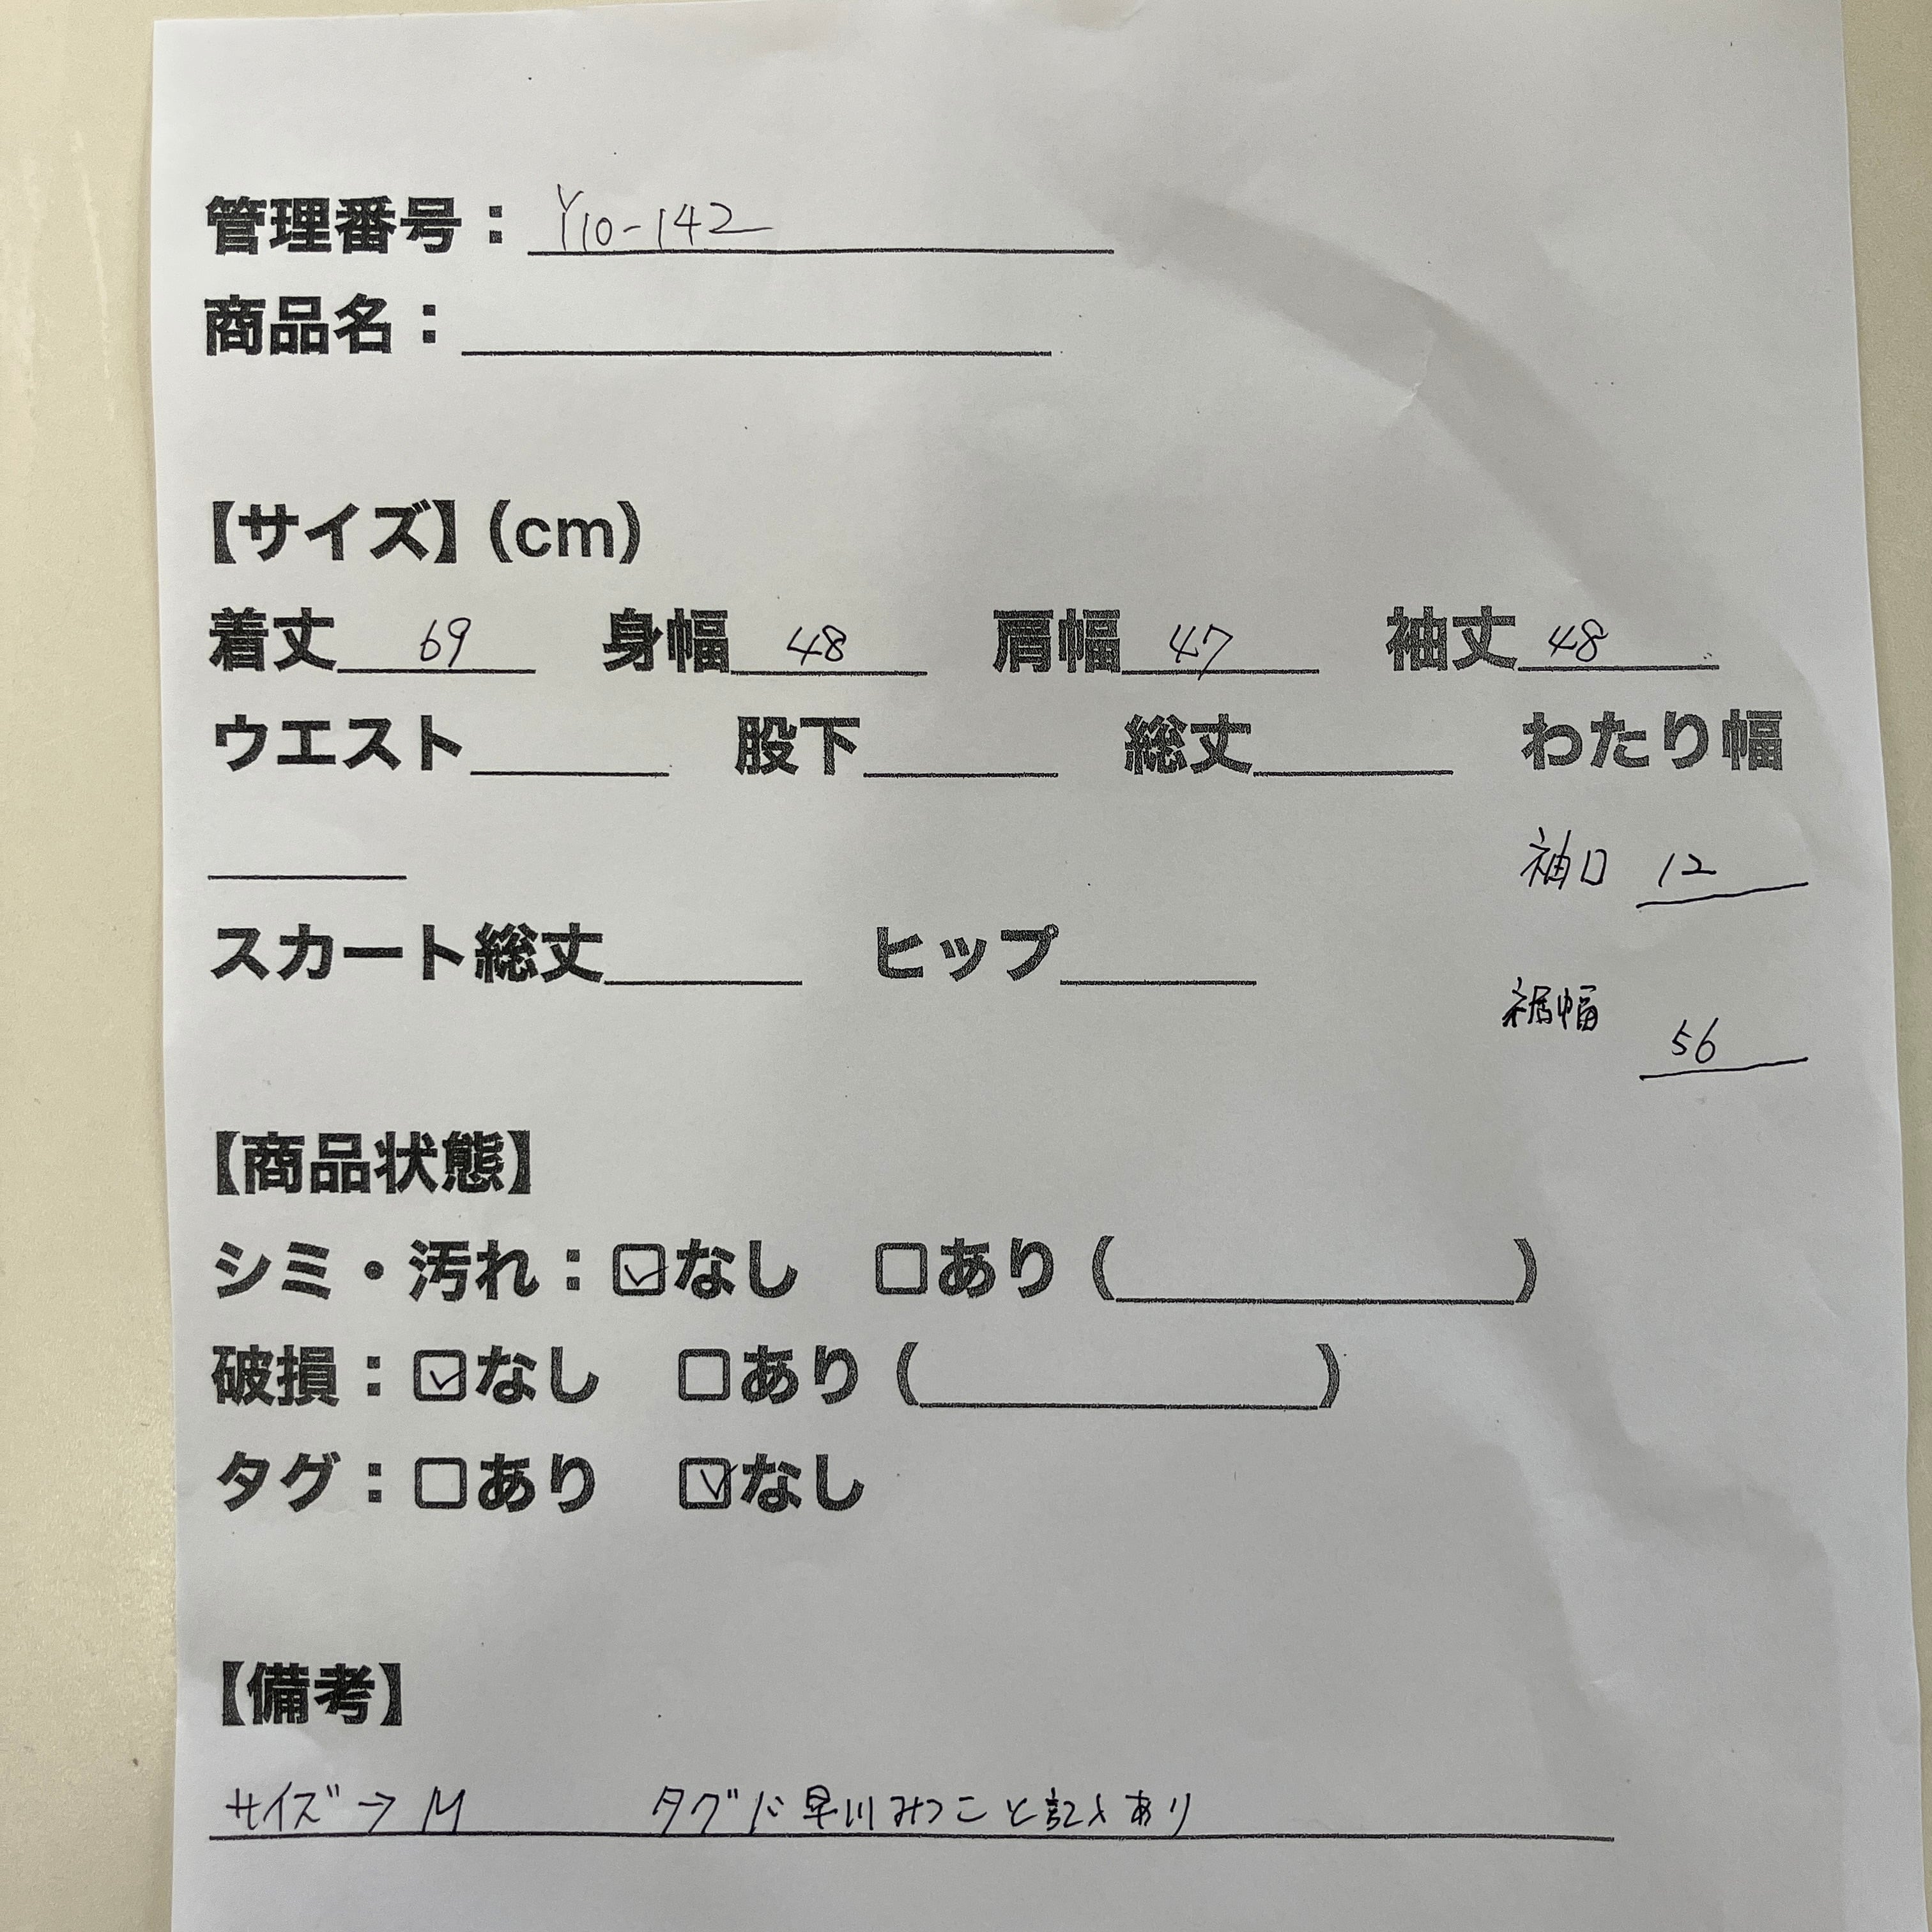 管理番号：Y10-142
商品名：
【サイズ】（cm）
着丈 69 身幅 48 肩幅 47 袖丈 48
ウエスト 股下 総丈 わたり幅
袖口 12
スカート総丈 ヒップ
裾幅 56
【商品状態】
シミ・汚れ：☑なし □あり（ ）
破損：☑なし □あり（ ）
タグ：□あり ☑なし
【備考】
サイズ→M タグに早川みつこと記入あり